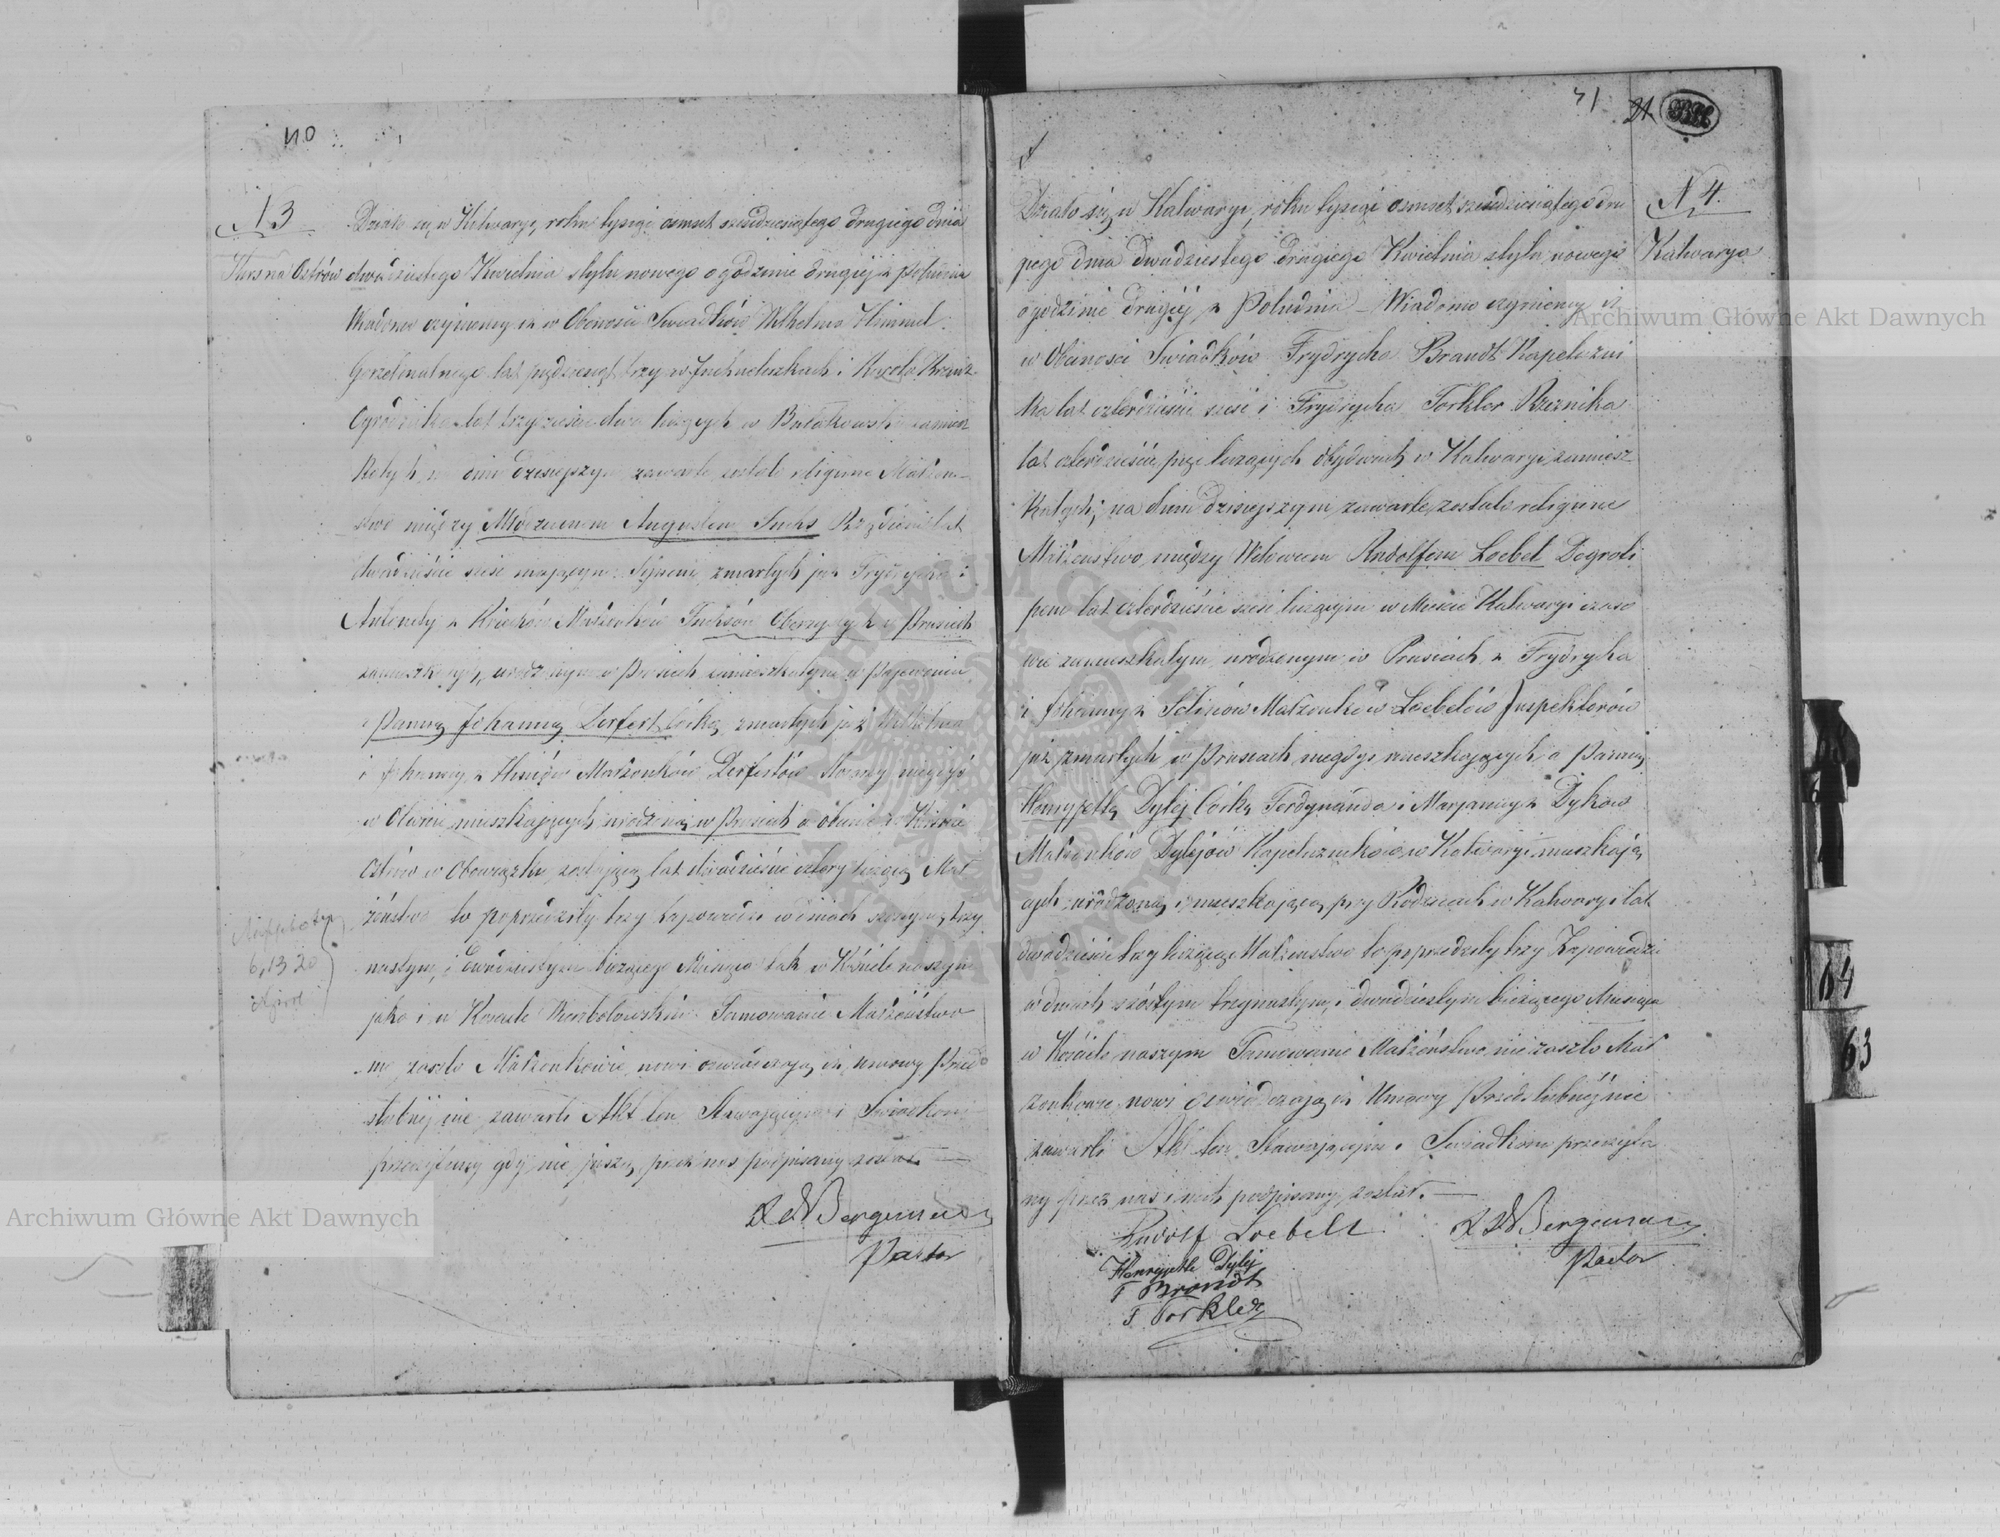 40
N 3
Kirsna Ostrów
Działo się w Kalwaryi, roku tysiąc osmset szesdziesiątego drugiego dnia
dwudziestego Kwietnia stylu nowego o godzinie drugiej z południa
Wiadomo czyniemy iż w Obecności Swiadków Wilhelma Himmel
lat pięćdziesiąt trzy w i Karola
Ogrodnika lat trzydzieści dwa liczących w zamiesz
kałych, na dniu dzisiejszym zawarte zostało religijne Małżen-
stwo między Młodzianem Augustem Fuchs lat
dwadzieście sześć mającym Synem zmarłych już Frydrycha i
Małżonków Fuchsów w Prusiech
zamieszkałych, urodzonym w Prusiech zamieszkałym w
a Panną Johanną Derfert Córką zmarłych już Wilhelma
i Johanny z Małżonków Derfertów niegdyś
w mieszkających urodzoną w Prusiech a obecnie w Kirsnie
Ostrów w Obowiązku zostającą lat dwadzieście cztery liczącą Mał
żeństwo to poprzedziły trzy zapowiedzi w dniach szóstym, trzy
nastym, i dwudziestym bieżącego Miesiąca tak w Kościele naszym
jako i w Kościele Wierzbołowskim Tamowanie Małżeństwa
nie zaszło Małżonkowie nowi oswiadczają iż umowy Przed
slubnej nie zawarli Akt ten Stawającym i Swiadkom
przeczytany gdy nie piszą, przez nas podpisany został.
Bergemann
Pastor
6, 13 20
41
21
N 4.
Kalwarya
Działo się w Kalwaryi, roku tysiąc osmset szesdziesiątego dru
giego dnia dwudziestego drugiego Kwietnia stylu nowego
o godzinie drugiej z Południa – Wiadomo czyniemy iż
w Obecnosci Swiadków Frydrycha Brandt Kapeluszni
ka lat czterdzieście sześć i Frydrycha Torkler Rzeznika
lat czterdzieście pięć liczących obydwóch w Kalwaryi zamiesz
kałych, na dniu dzisiejszym zawarte zostało religijne
Małżenstwo między Wdowcem Rudolfem Loebel
lat czterdzieście sześć liczącym w Mieście Kalwaryi czaso
wie zamieszkałym urodzonym w Prusiach z Frydrycha
i Johanny z Małżonków Loebelów Inspektorów
już zmarłych w Prusiach niegdyś mieszkających, a Panną
Henryjettą Dylej Córką Ferdynanda i Maryanny z Dyków
Małżonków Dylejów Kapeluszników w Kalwaryi mieszkają
cych urodzoną i mieszkającą przy Rodzicach w Kalwaryi lat
dwadzieście trzy liczącą Małżenstwo to poprzedziły trzy Zapowiedzi
w dniach szóstym trzynastym, i dwudziestym bieżącego Miesiąca
w Kościele naszym Tamowanie Małżeństwa nie zaszło Mał
żonkowie nowi oswiadczają iż Umowy Przedslubnej nie
zawarli Akt ten Stawającym i Swiadkom przeczyta
ny przez nas i nich podpisany został.
Rudolf Loebell
Henryjette Dylej
F Brandt
F. Torkler
Bergemann
Pastor
64
63
Archiwum Główne Akt Dawnych
Archiwum Główne Akt Dawnych
ARCHIWUM GŁÓWNE AKT DAWNYCH